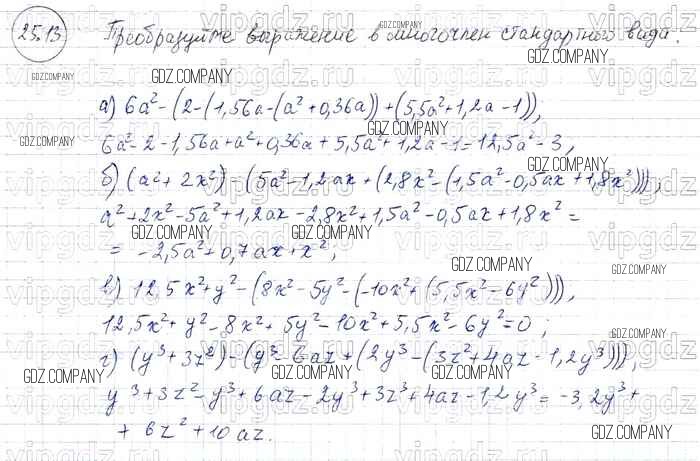 25.13 Преобразуйте выражение в многочлен стандартного вида.
а) 6a² - (2 - (1,56a - (a² + 0,36a)) + (5,5a² + 1,2a - 1)),
6a² - 2 - 1,56a + a² + 0,36a + 5,5a² + 1,2a - 1 = 12,5a² - 3,
б) (a² + 2x²) - (5a² - 1,2ax + (2,8x² - (1,5a² - 0,5ax + 1,8x²))),
a² + 2x² - 5a² + 1,2ax - 2,8x² + 1,5a² - 0,5ax + 1,8x² =
= -2,5a² + 0,7ax + x²,
в) 12,5x² + y² - (8x² - 5y² - (-10x² + (5,5x² - 6y²))),
12,5x² + y² - 8x² + 5y² - 10x² + 5,5x² - 6y² = 0;
г) (y³ + 3z²) - (y³ - 6az + (2y³ - (3z² + 4az - 1,2y³))),
y³ + 3z² - y³ + 6az - 2y³ + 3z³ + 4az - 1,2y³ = -3,2y³ +
+ 6z² + 10az.
GDZ.COMPANY
GDZ.COMPANY
GDZ.COMPANY
GDZ.COMPANY
GDZ.COMPANY
GDZ.COMPANY
GDZ.COMPANY
GDZ.COMPANY
GDZ.COMPANY
GDZ.COMPANY
GDZ.COMPANY
GDZ.COMPANY
GDZ.COMPANY
GDZ.COMPANY